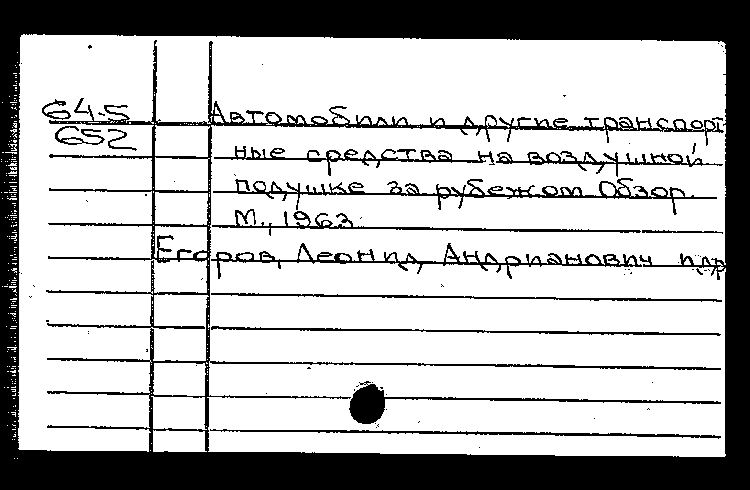 64-5
652
Автомобили и другие транспорт
ные средства на воздушной
подушке за рубежом Обзор.
М., 1963
Егоров, Леонид Андрианович и др